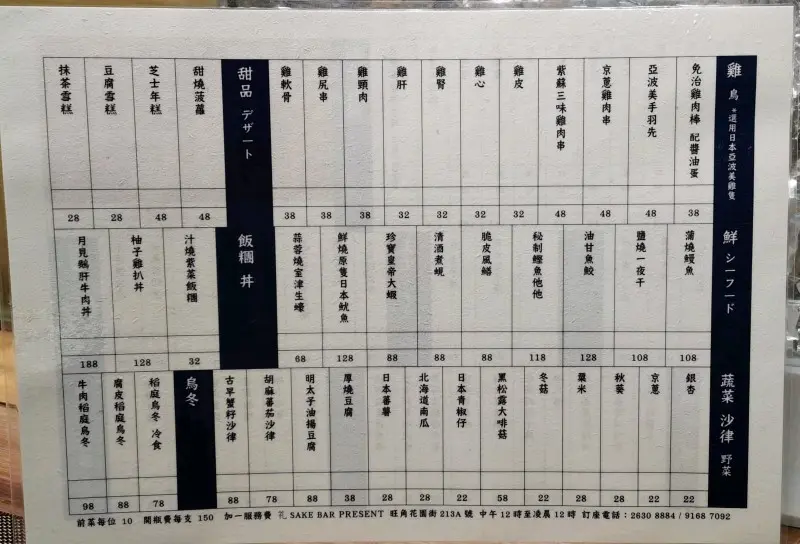 雞 鳥 *選用日本亞波美雞隻
免治雞肉棒 配醬油蛋 38
亞波美手羽先 48
京蔥雞肉串 48
紫蘇三味雞肉串 48
雞皮 32
雞心 32
雞腎 32
雞肝 32
雞頸肉 38
雞尻串 38
雞軟骨 38
甜品 デザート
甜燒菠蘿 48
芝士年糕 48
豆腐雪糕 28
抹茶雪糕 28
鮮 シーフード
蒲燒鰻魚 108
鹽燒一夜干 108
油甘魚鮫 128
秘制鰹魚他他 118
脆皮風鱔 88
清酒煮蜆 88
珍寶皇帝大蝦 88
鮮燒原隻日本魷魚 128
蒜蓉燒室津生蠔 68
飯糰 丼
汁燒紫菜飯糰 32
柚子雞扒丼 128
月見鵝肝牛肉丼 188
蔬菜 沙律 野菜
銀杏 22
京蔥 22
秋葵 28
粟米 28
冬菇 22
黑松露大啡菇 58
日本青椒仔 22
北海道南瓜 28
日本蕃薯 28
厚燒豆腐 38
明太子油揚豆腐 88
胡麻蕃茄沙律 78
古早蟹籽沙律 88
烏冬
稻庭烏冬 冷食 78
腐皮稻庭烏冬 88
牛肉稻庭烏冬 98
前菜每位 10 開瓶費每支 150 加一服務費 礼 SAKE BAR PRESENT 旺角花園街 213A 號 中午 12 時至凌晨 12 時 訂座電話：2630 8884 / 9168 7092